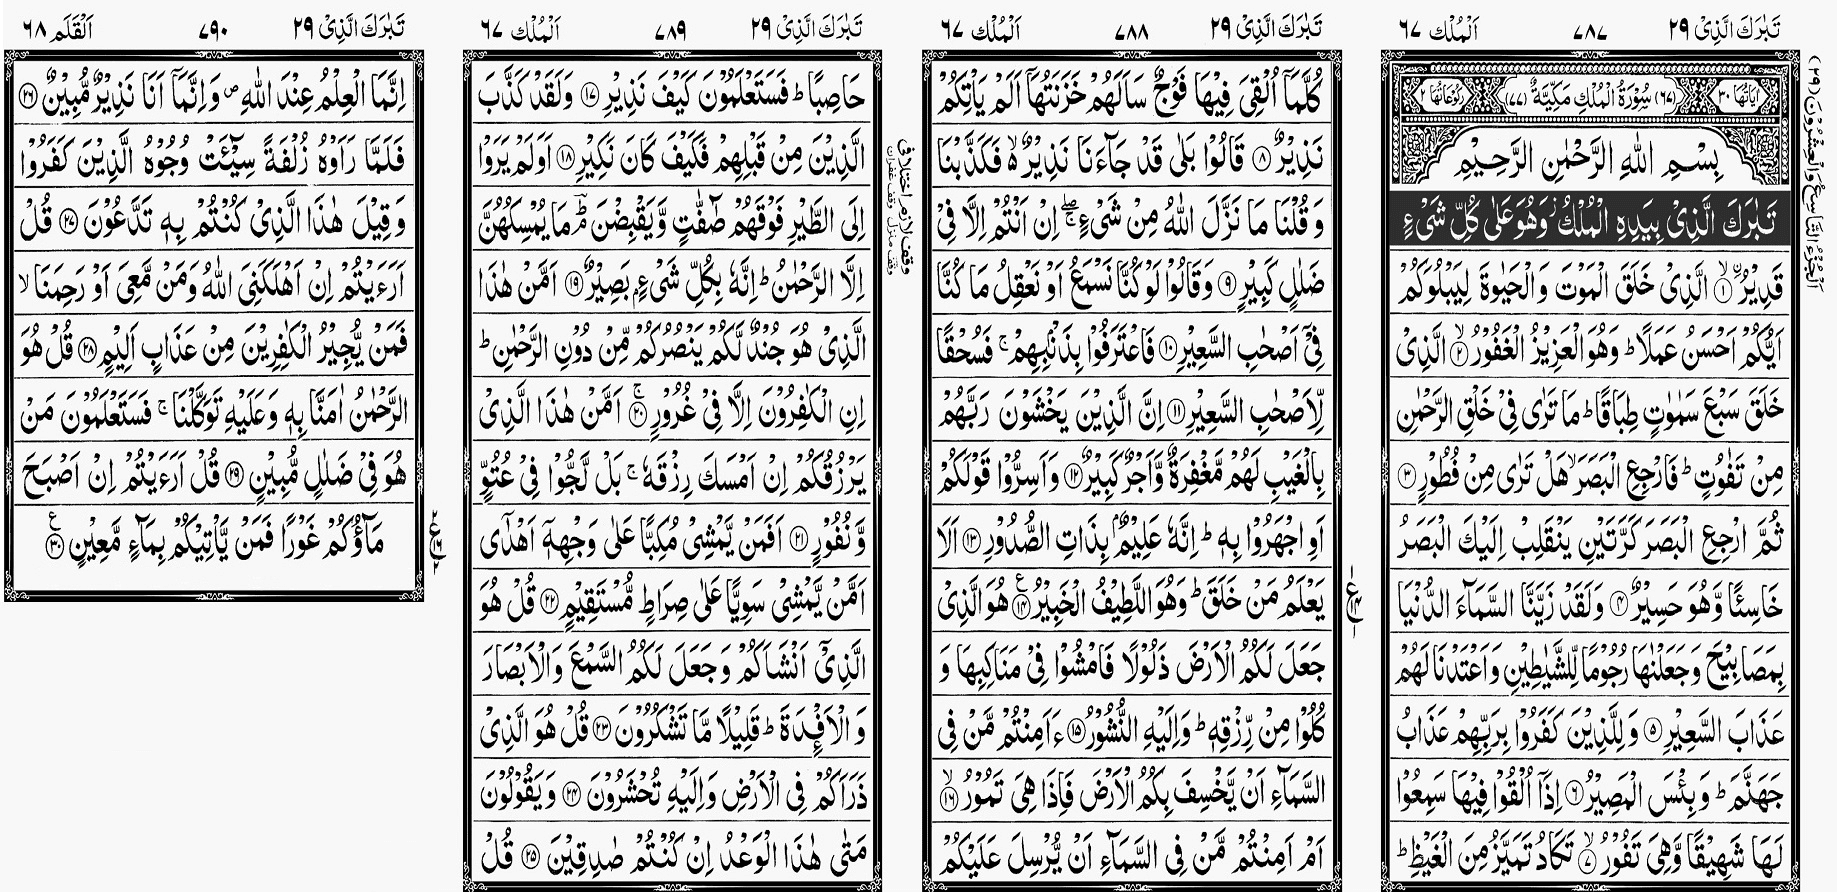 تَبٰرَكَ الَّذِىْ ٢٩ ٧٨٧ اَلْمُلْك ٦٧
اٰيَاتُهَا ٣٠ (٦٧) سُوْرَةُ الْمُلْكِ مَكِّيَّةٌ (٧٧) رُكُوْعَاتُهَا ٢
بِسْمِ اللّٰهِ الرَّحْمٰنِ الرَّحِيْمِ
تَبٰرَكَ الَّذِىْ بِيَدِهِ الْمُلْكُ ز وَهُوَ عَلٰى كُلِّ شَىْءٍ
قَدِيْرُ ۙ ﴿١﴾ الَّذِىْ خَلَقَ الْمَوْتَ وَالْحَيٰوةَ لِيَبْلُوَكُمْ
اَيُّكُمْ اَحْسَنُ عَمَلًا ؕ وَهُوَ الْعَزِيْزُ الْغَفُوْرُ ۙ ﴿٢﴾ الَّذِىْ
خَلَقَ سَبْعَ سَمٰوٰتٍ طِبَاقًا ؕ مَا تَرٰى فِىْ خَلْقِ الرَّحْمٰنِ
مِنْ تَفٰوُتٍ ؕ فَارْجِعِ الْبَصَرَ ۙ هَلْ تَرٰى مِنْ فُطُوْرٍ ﴿٣﴾
ثُمَّ ارْجِعِ الْبَصَرَ كَرَّتَيْنِ يَنْقَلِبْ اِلَيْكَ الْبَصَرُ
خَاسِئًا وَّهُوَ حَسِيْرٌ ﴿٤﴾ وَلَقَدْ زَيَّنَّا السَّمَآءَ الدُّنْيَا
بِمَصَابِيْحَ وَجَعَلْنٰهَا رُجُوْمًا لِّلشَّيٰطِيْنِ وَاَعْتَدْنَا لَهُمْ
عَذَابَ السَّعِيْرِ ﴿٥﴾ وَلِلَّذِيْنَ كَفَرُوْا بِرَبِّهِمْ عَذَابُ
جَهَنَّمَ ؕ وَبِئْسَ الْمَصِيْرُ ﴿٦﴾ اِذَآ اُلْقُوْا فِيْهَا سَمِعُوْا
لَهَا شَهِيْقًا وَّهِىَ تَفُوْرُ ۙ ﴿٧﴾ تَكَادُ تَمَيَّزُ مِنَ الْغَيْظِ ؕ
اَلْجُزْءُ التَّاسِعُ وَالْعِشْرُوْنَ (٢٩)
تَبٰرَكَ الَّذِىْ ٢٩ ٧٨٨ اَلْمُلْك ٦٧
كُلَّمَآ اُلْقِىَ فِيْهَا فَوْجٌ سَاَلَهُمْ خَزَنَتُهَآ اَلَمْ يَاْتِكُمْ
نَذِيْرٌ ﴿٨﴾ قَالُوْا بَلٰى قَدْ جَآءَنَا نَذِيْرٌ ۙ۬ فَكَذَّبْنَا
وَقُلْنَا مَا نَزَّلَ اللّٰهُ مِنْ شَىْءٍ ۚۖ اِنْ اَنْتُمْ اِلَّا فِىْ
ضَلٰلٍ كَبِيْرٍ ﴿٩﴾ وَقَالُوْا لَوْ كُنَّا نَسْمَعُ اَوْ نَعْقِلُ مَا كُنَّا
فِىْٓ اَصْحٰبِ السَّعِيْرِ ﴿١٠﴾ فَاعْتَرَفُوْا بِذَنْۢبِهِمْ ۚ فَسُحْقًا
لِّاَصْحٰبِ السَّعِيْرِ ﴿١١﴾ اِنَّ الَّذِيْنَ يَخْشَوْنَ رَبَّهُمْ
بِالْغَيْبِ لَهُمْ مَّغْفِرَةٌ وَّاَجْرٌ كَبِيْرٌ ﴿١٢﴾ وَاَسِرُّوْا قَوْلَكُمْ
اَوِ اجْهَرُوْا بِهٖ ؕ اِنَّهٗ عَلِيْمٌۢ بِذَاتِ الصُّدُوْرِ ﴿١٣﴾ اَلَا
يَعْلَمُ مَنْ خَلَقَ ؕ وَهُوَ اللَّطِيْفُ الْخَبِيْرُ ﴿١٤﴾ هُوَ الَّذِىْ
جَعَلَ لَكُمُ الْاَرْضَ ذَلُوْلًا فَامْشُوْا فِىْ مَنَاكِبِهَا وَ
كُلُوْا مِنْ رِّزْقِهٖ ؕ وَاِلَيْهِ النُّشُوْرُ ﴿١٥﴾ ءَاَمِنْتُمْ مَّنْ فِى
السَّمَآءِ اَنْ يَّخْسِفَ بِكُمُ الْاَرْضَ فَاِذَا هِىَ تَمُوْرُ ۙ ﴿١٦﴾
اَمْ اَمِنْتُمْ مَّنْ فِى السَّمَآءِ اَنْ يُّرْسِلَ عَلَيْكُمْ
تَبٰرَكَ الَّذِىْ ٢٩ ٧٨٩ اَلْمُلْك ٦٧
حَاصِبًا ؕ فَسَتَعْلَمُوْنَ كَيْفَ نَذِيْرِ ﴿١٧﴾ وَلَقَدْ كَذَّبَ
الَّذِيْنَ مِنْ قَبْلِهِمْ فَكَيْفَ كَانَ نَكِيْرِ ﴿١٨﴾ اَوَلَمْ يَرَوْا
اِلَى الطَّيْرِ فَوْقَهُمْ صٰٓفّٰتٍ وَّيَقْبِضْنَ ؔۘ مَا يُمْسِكُهُنَّ
اِلَّا الرَّحْمٰنُ ؕ اِنَّهٗ بِكُلِّ شَىْءٍۢ بَصِيْرٌ ﴿١٩﴾ اَمَّنْ هٰذَا
الَّذِىْ هُوَ جُنْدٌ لَّكُمْ يَنْصُرُكُمْ مِّنْ دُوْنِ الرَّحْمٰنِ ؕ
اِنِ الْكٰفِرُوْنَ اِلَّا فِىْ غُرُوْرٍ ۚ ﴿٢٠﴾ اَمَّنْ هٰذَا الَّذِىْ
يَرْزُقُكُمْ اِنْ اَمْسَكَ رِزْقَهٗ ۚ بَلْ لَّجُّوْا فِىْ عُتُوٍّ
وَّنُفُوْرٍ ﴿٢١﴾ اَفَمَنْ يَّمْشِىْ مُكِبًّا عَلٰى وَجْهِهٖٓ اَهْدٰٓى
اَمَّنْ يَّمْشِىْ سَوِيًّا عَلٰى صِرَاطٍ مُّسْتَقِيْمٍ ﴿٢٢﴾ قُلْ هُوَ
الَّذِىْٓ اَنْشَاَكُمْ وَجَعَلَ لَكُمُ السَّمْعَ وَالْاَبْصَارَ
وَالْاَفْـِٕدَةَ ؕ قَلِيْلًا مَّا تَشْكُرُوْنَ ﴿٢٣﴾ قُلْ هُوَ الَّذِىْ
ذَرَاَكُمْ فِى الْاَرْضِ وَاِلَيْهِ تُحْشَرُوْنَ ﴿٢٤﴾ وَيَقُوْلُوْنَ
مَتٰى هٰذَا الْوَعْدُ اِنْ كُنْتُمْ صٰدِقِيْنَ ﴿٢٥﴾ قُلْ
تَبٰرَكَ الَّذِىْ ٢٩ ٧٩٠ اَلْقَلَم ٦٨
اِنَّمَا الْعِلْمُ عِنْدَ اللّٰهِ ص وَاِنَّمَآ اَنَا نَذِيْرٌ مُّبِيْنٌ ﴿٢٦﴾
فَلَمَّا رَاَوْهُ زُلْفَةً سِيْٓـَٔتْ وُجُوْهُ الَّذِيْنَ كَفَرُوْا
وَقِيْلَ هٰذَا الَّذِىْ كُنْتُمْ بِهٖ تَدَّعُوْنَ ﴿٢٧﴾ قُلْ
اَرَءَيْتُمْ اِنْ اَهْلَكَنِىَ اللّٰهُ وَمَنْ مَّعِىَ اَوْ رَحِمَنَا ۙ
فَمَنْ يُّجِيْرُ الْكٰفِرِيْنَ مِنْ عَذَابٍ اَلِيْمٍ ﴿٢٨﴾ قُلْ هُوَ
الرَّحْمٰنُ اٰمَنَّا بِهٖ وَعَلَيْهِ تَوَكَّلْنَا ۚ فَسَتَعْلَمُوْنَ مَنْ
هُوَ فِىْ ضَلٰلٍ مُّبِيْنٍ ﴿٢٩﴾ قُلْ اَرَءَيْتُمْ اِنْ اَصْبَحَ
مَآؤُكُمْ غَوْرًا فَمَنْ يَّاْتِيْكُمْ بِمَآءٍ مَّعِيْنٍ ﴿٣٠﴾